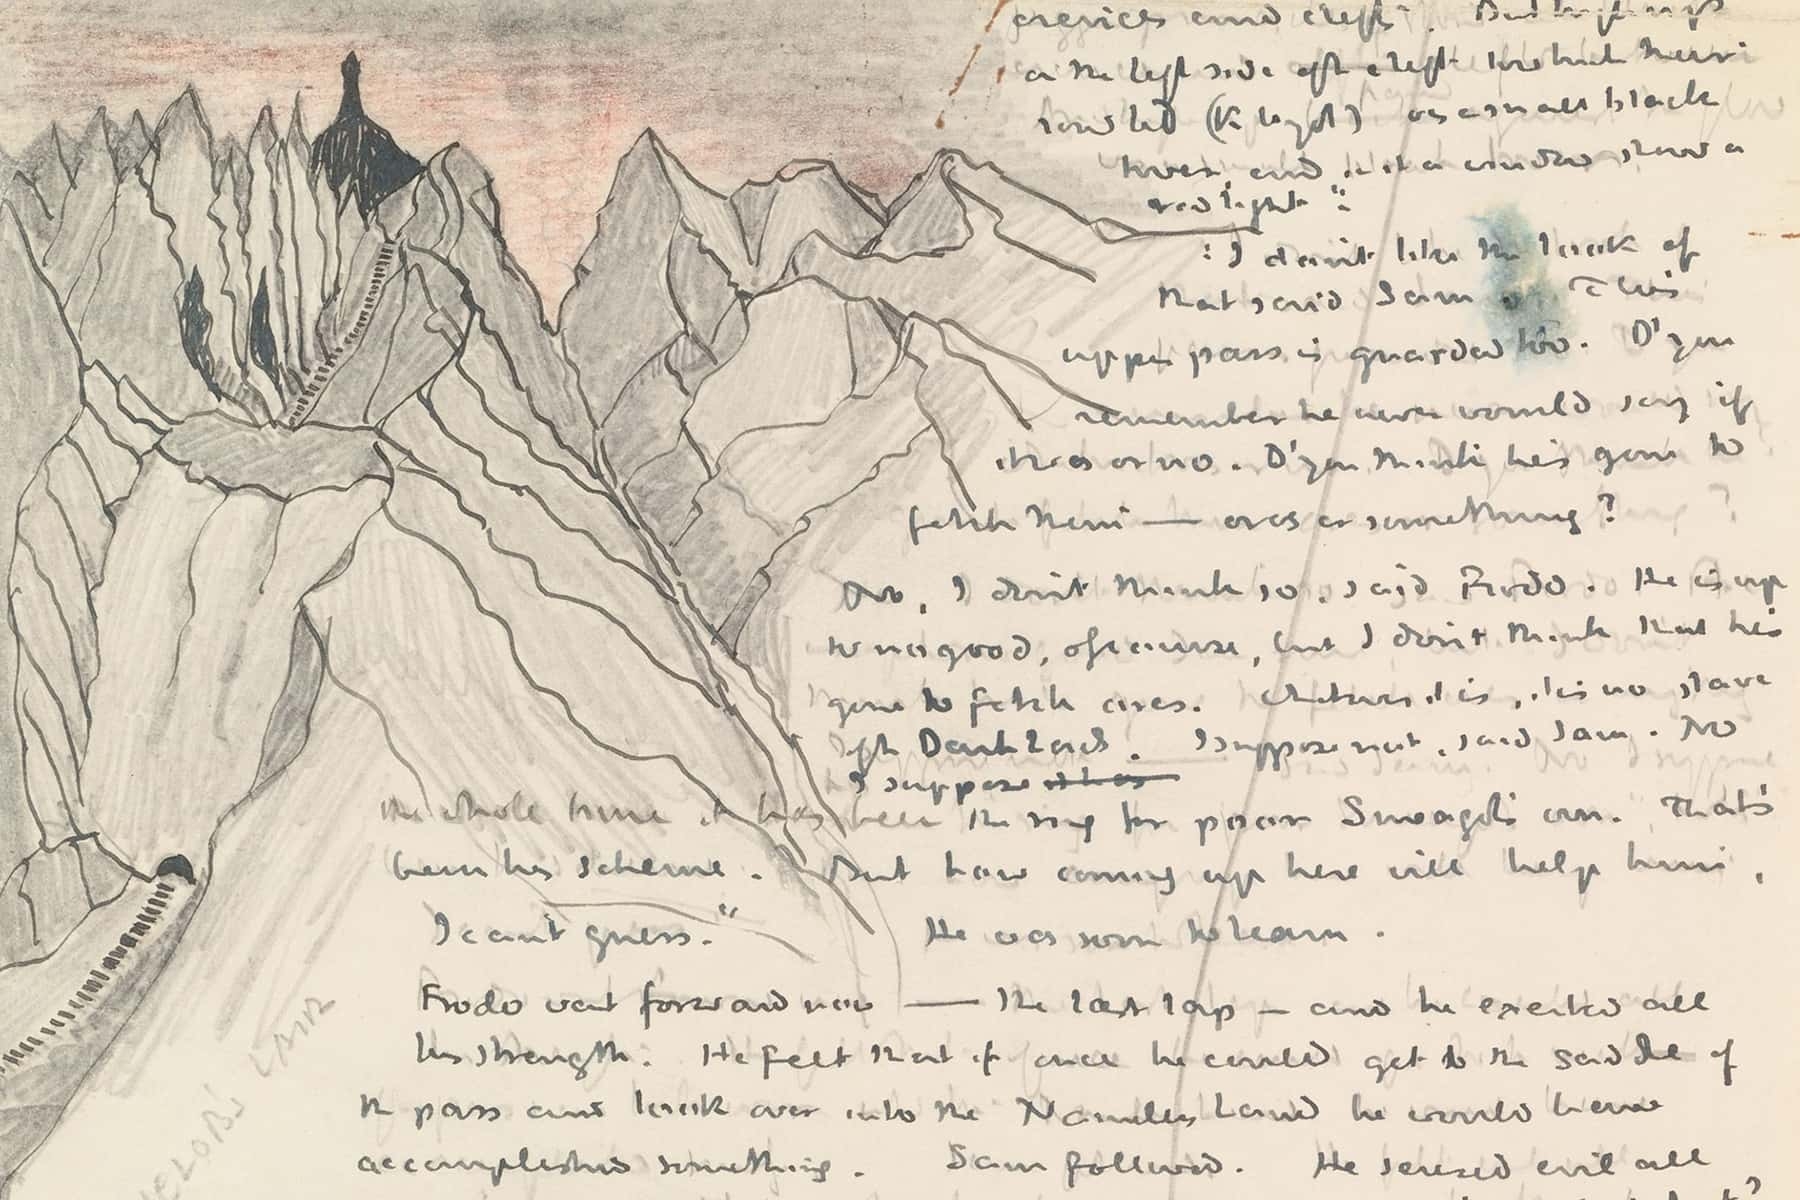 crevices and cleft. But
on the left side of cleft to which their
road led (K. Ungol) was a small black
tower and in it a window showed a
red light":
: I don't like the look of
that said Sam This
upper pass is guarded too. D'you
remember he never would say if
it was or no. D'you think he's gone to
fetch them — orcs or something?
No, I don't think so, said Frodo. He is up
to no good, of course, but I don't think that he's
gone to fetch orcs. Whatever it is, it is no slave
of the Dark Lords. I suppose not, said Sam. No
I suppose it has
the whole time it has been the ring for poor Smeagol's own. That's
been his scheme. But how coming up here will help him,
I can't guess." He was soon to learn.
Frodo went forward now — the last lap — and he exerted all
his strength. He felt that if once he could get to the saddle of
the pass and look over into the Nameless Land he would have
accomplished something. Sam followed. He sensed evil all
SHELOB'S LAIR